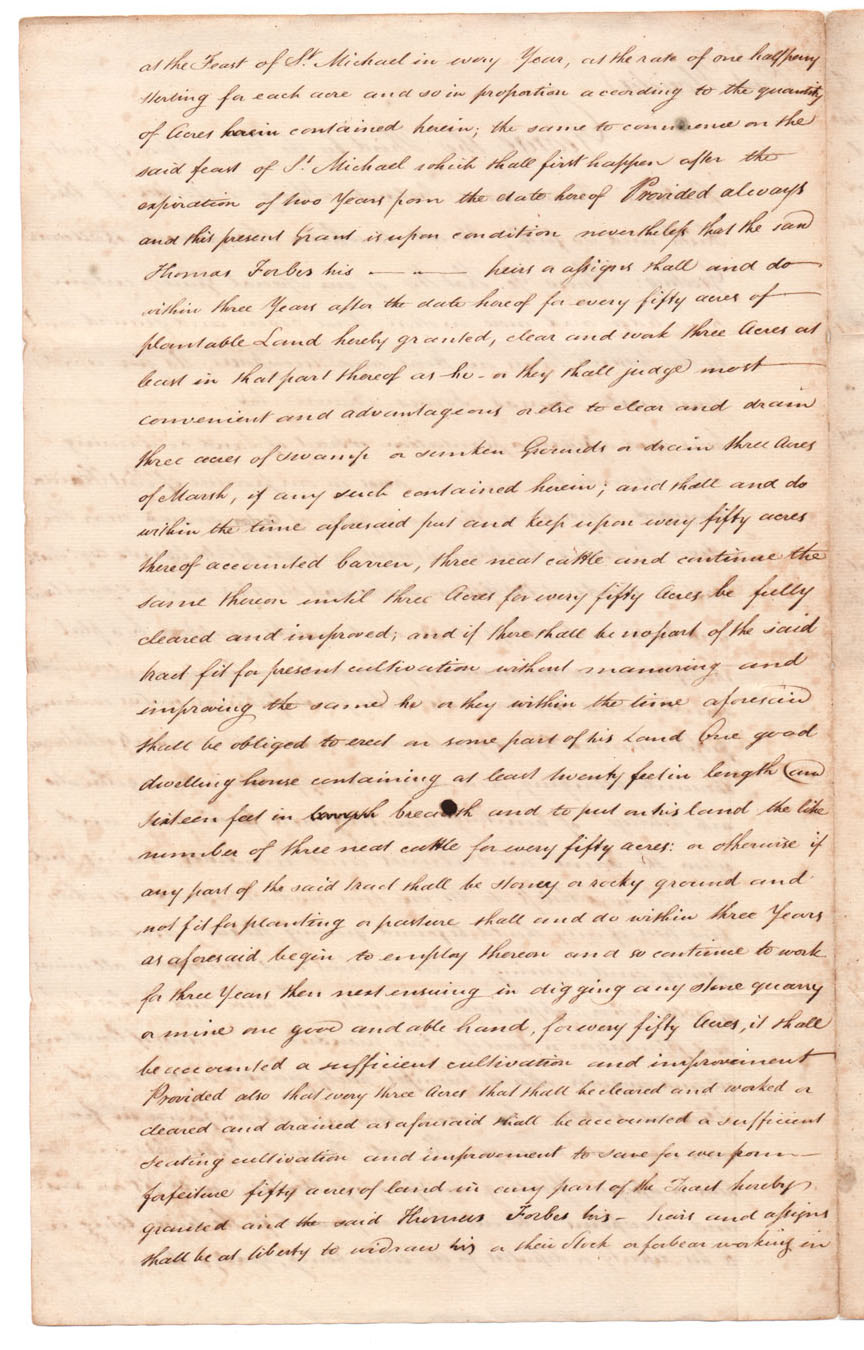 at the Feast of St. Michael in every Year, at the rate of one halfpenny
sterling for each acre and so in proportion according to the quantity
of Acres herein contained herein; the same to commence on the
said feast of St Michael which shall first happen after the
expiration of two Years from the date hereof Provided always
and this present Grant is upon condition nevertheless that the said
Thomas Forbes his — " — heirs or assigns shall and do
within three Years after the date hereof for every fifty acres of
plantable Land hereby granted, clear and work three Acres at
least in that part thereof as he - or they shall judge most
convenient and advantageous or else to clear and drain
three acres of swamp or sunken Grounds or drain three Acres
of Marsh, if any such contained herein; and shall and do
within the time aforesaid put and keep upon every fifty acres
thereof accounted barren, three neat cattle and continue the
same thereon until three Acres for every fifty Acres be fully
cleared and improved; and if there shall be no part of the said
tract fit for present cultivation without manuring and
improving the same he or they within the time aforesaid
shall be obliged to erect on some part of his Land One good
dwelling house containing at least twenty feet in length and
sixteen feet in length breadth and to put on his land the like
number of three neat cattle for every fifty acres: or otherwise if
any part of the said tract shall be stoney or rocky ground and
not fit for planting or pasture shall and do within three Years
as aforesaid begin to employ thereon and so continue to work
for three Years then next ensuing in digging any stone quarry
or mine one good and able hand, for every fifty Acres, it shall
be accounted a sufficient cultivation and improvement
Provided also that every three Acres that shall be cleared and worked or
cleared and drained as aforesaid shall be accounted a sufficient
seating cultivation and improvement to save for ever from —
forfeiture fifty acres of land in any part of the Tract hereby
granted and the said Thomas Forbes his - heirs and assigns
shall be at liberty to widraw his or their stock or forbear working in